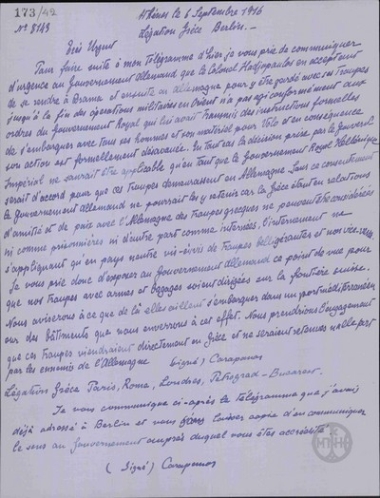 173/42
Athènes le 6 Septembre 1916
Nº 8143
Légation Grèce Berlin.
Très Urgent
Pour faire suite à mon télégramme d'hier je vous prie de communiquer
d'urgence au Gouvernement Allemand que le Colonel Hadjopoulos en acceptant
de se rendre à Drama et ensuite en Allemagne pour y être gardé avec ses troupes
jusqu'à la fin des opérations militaires en Orient n'a pas agi conformément aux
ordres du Gouvernement Royal qui lui avait transmis des instructions formelles
de s'embarquer avec tous ses hommes et son matériel pour Volo et en conséquence
son action est formellement désavouée. En tout cas la décision prise par le Gouvern.
Impérial ne saurait être applicable qu'en tant que le Gouvernement Royal Hellénique
serait d'accord pour que ces troupes demeurassent en Allemagne. Sans ce consentement
le Gouvernement allemand ne pourrait les y retenir car la Grèce étant en relations
d'amitié et de paix avec l'Allemagne des troupes grecques ne peuvent être considérées
ni comme prisonnières ni d'autre part comme internées, l'internement ne
s'appliquant qu'en pays neutre vis-à-vis de troupes belligérantes et non vice-versa.
Je vous prie donc d'exposer au Gouvernement allemand ce point de vue pour
que nos troupes avec armes et bagages soient dirigées sur la frontière suisse.
Nous aviserons à ce que de là elles aillent s'embarquer dans un port méditerranéen
sur des bâtiments que nous enverrons à cet effet. Nous prendrions l'engagement
que ces troupes viendraient directement en Grèce et ne seraient retenues nulle part
par les ennemis de l'Allemagne (signé) Carapanos
Légations Grèce Paris, Rome, Londres, Petrograd - Bucarest.
Je vous communique ci-après le télégramme que j'avais
déjà adressé à Berlin et vous laisser copie d'en communiquer
le sens au Gouvernement auprès duquel vous êtes accrédité
(Signé) Carapanos